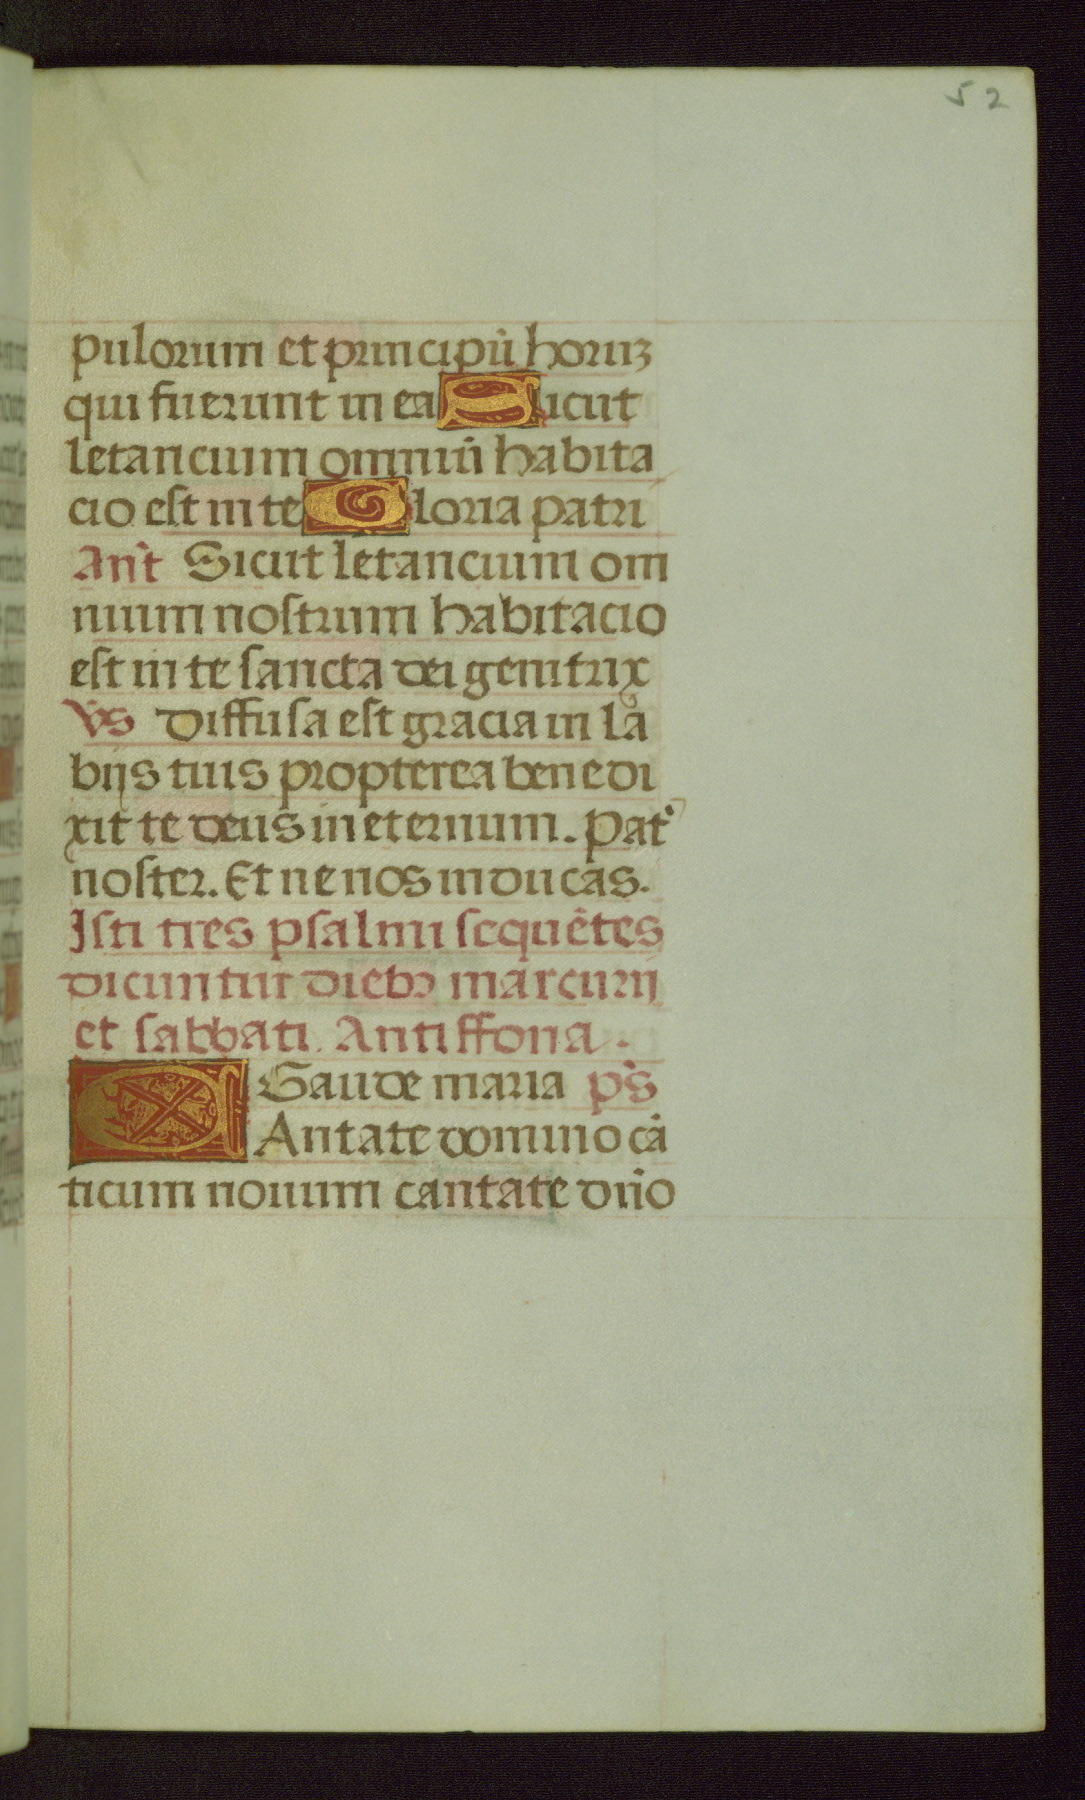 52
pulorum et principū horuꝫ
qui fuerunt in ea Sicut
letancium omniū habita
cio est in te Gloria patri
Ant̄ Sicut letancium om
nium nostrum habitacio
est in te sancta dei genitrix
Vs̄ Diffusa est gracia in la
bijs tuis propterea benedi
xit te deus in eternum. Pat̛
noster. Et ne nos inducas.
Isti tres psalmi sequētes
dicuntur dieb᷒ marcurij
et sabbati. Antiffona.
Gaude maria ps̄
CAntate domino cā
ticum nouum cantate dn̄o